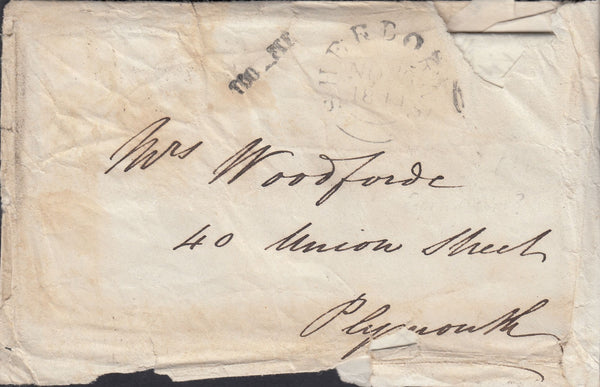 SHERBO
Mrs Woodforde
40 Union Street
Plymouth